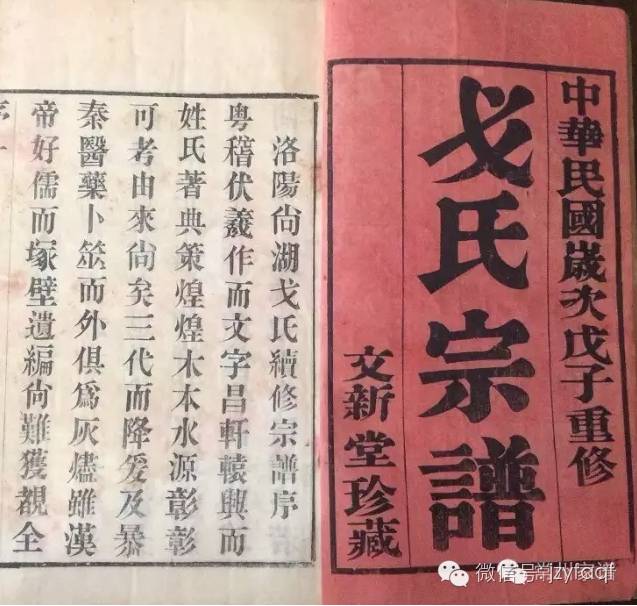 中華民國歲次戊子重修
戈氏宗譜
文新堂珍藏
洛陽尙湖戈氏續修宗譜序
粤稽伏羲作而文字昌軒轅興而
姓氏著典策煌煌木本水源彰彰
可考由來尙矣三代而降爰及暴
秦醫藥卜筮而外俱爲灰燼雖漢
帝好儒而塚壁遺編尙難獲覩全
序一
微信号: jzyfacq
常州家谱